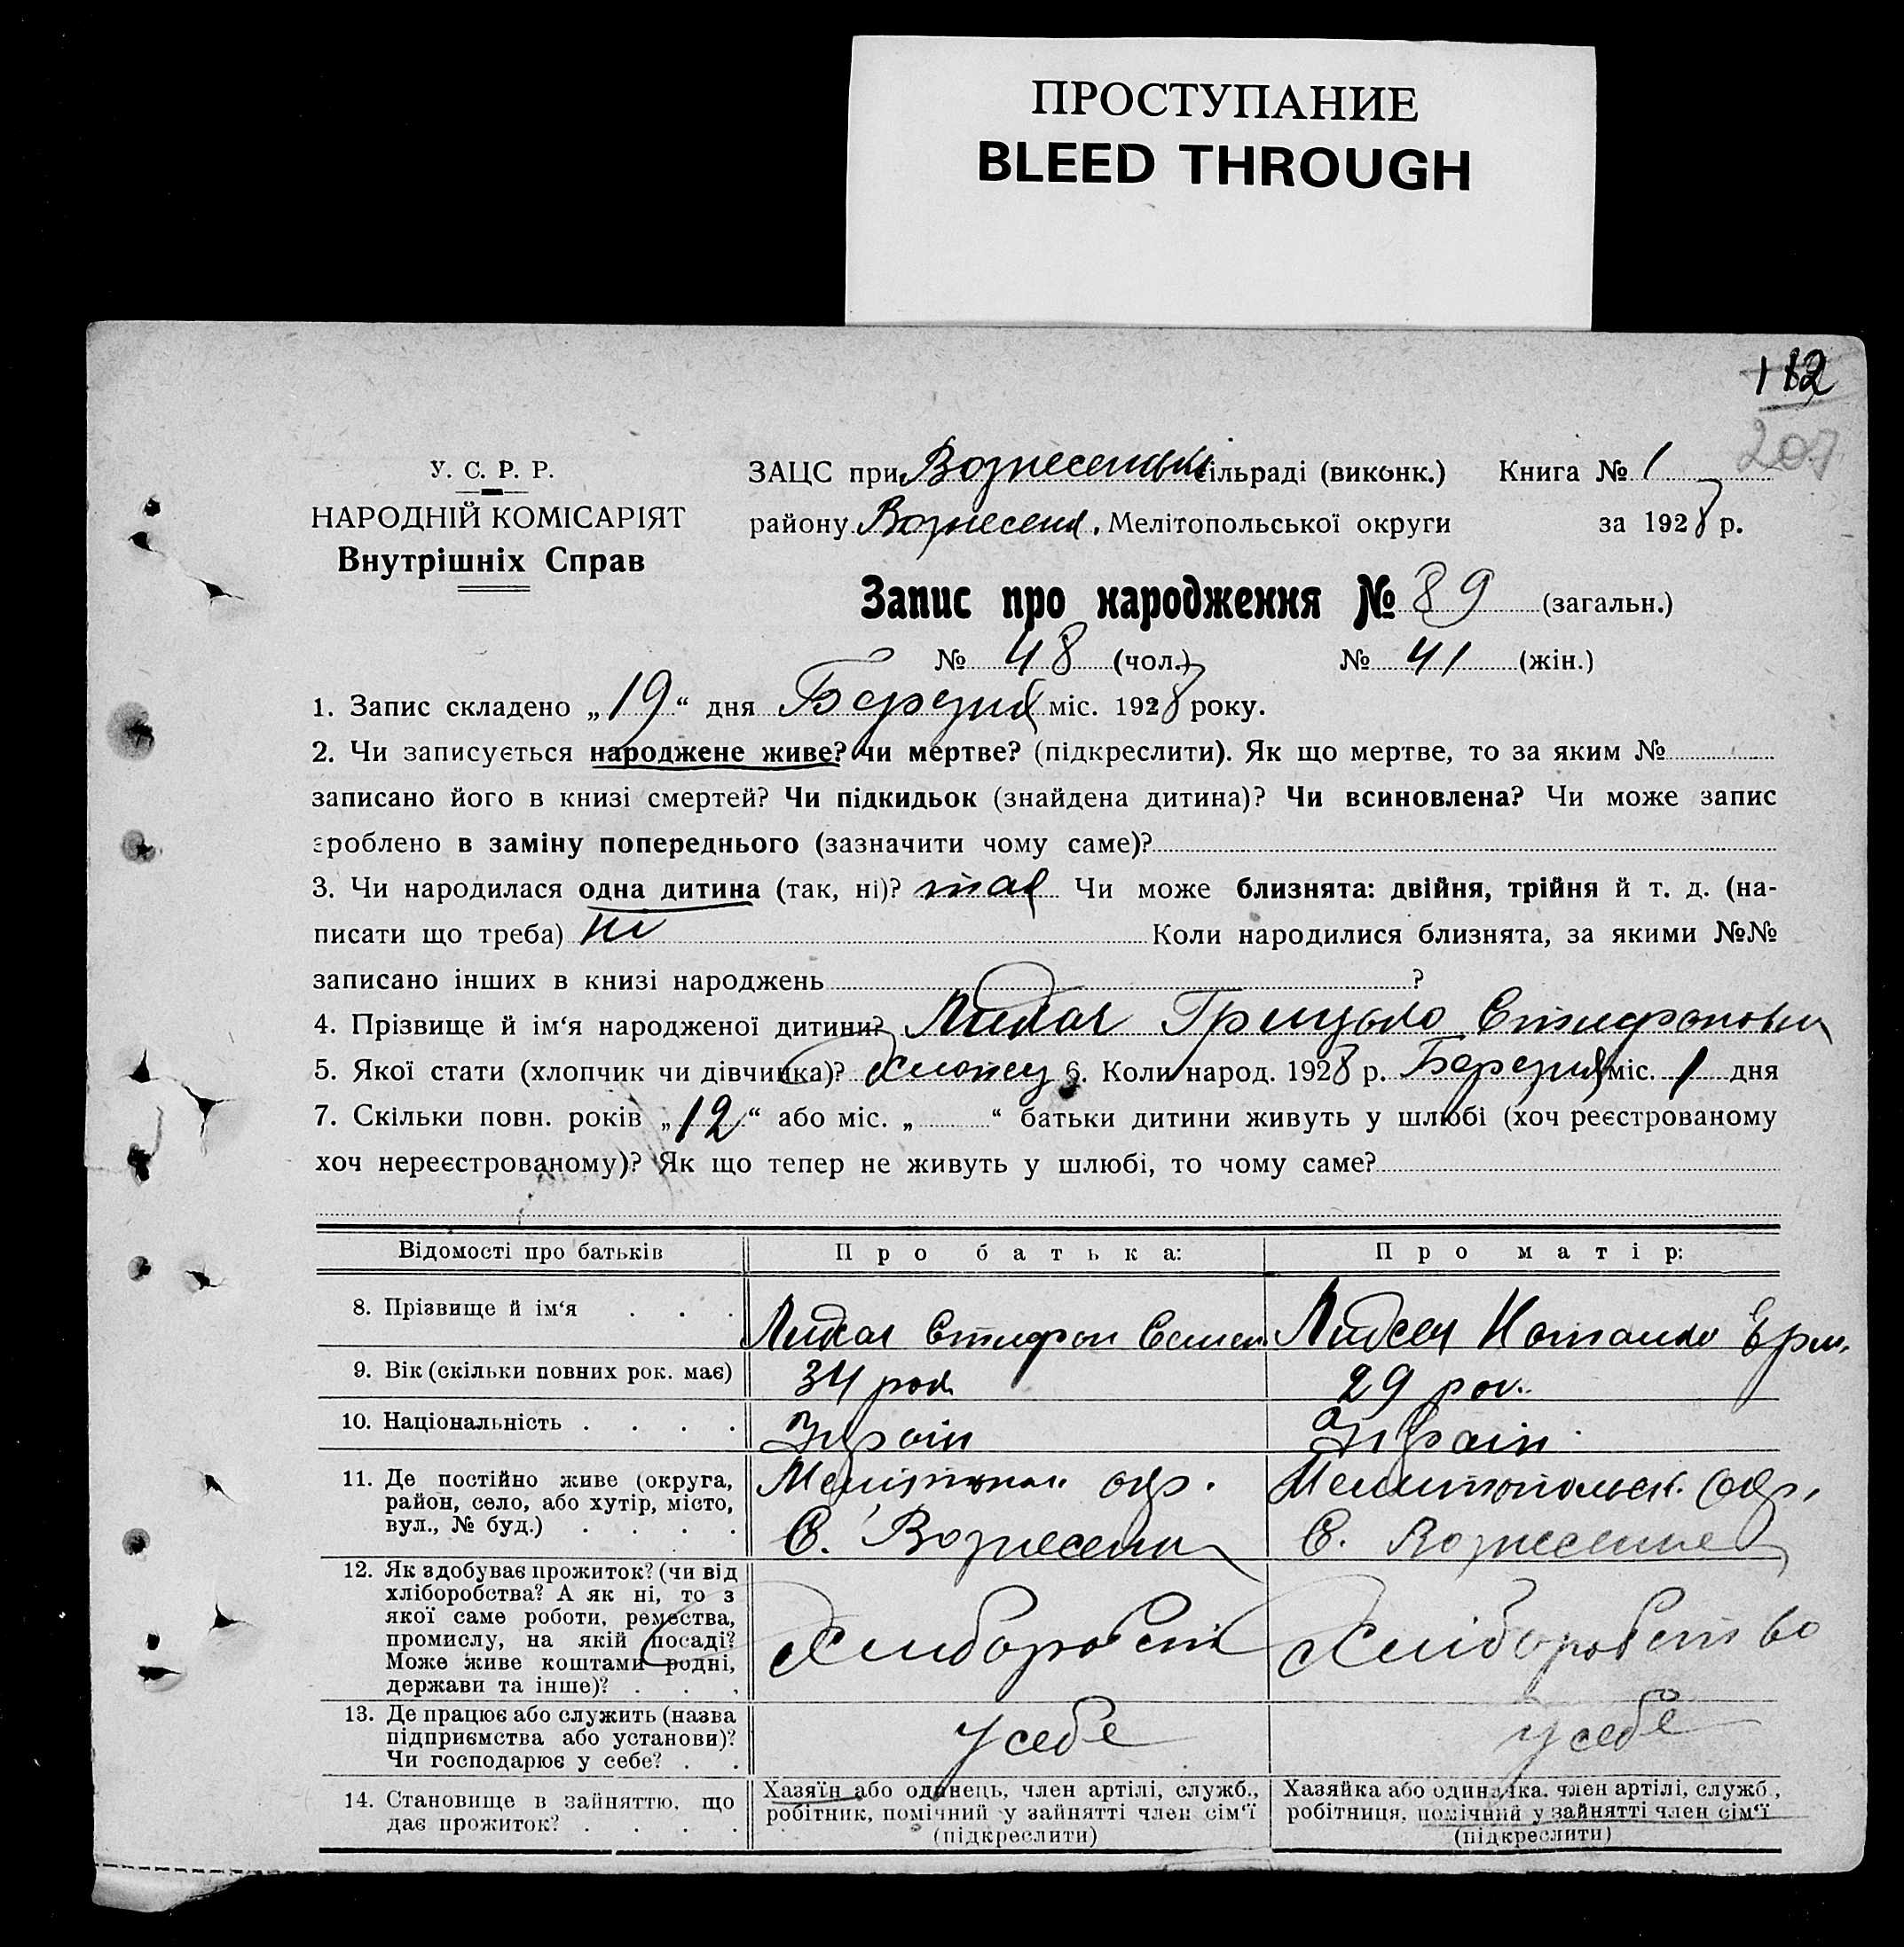 ПРОСТУПАНИЕ
BLEED THROUGH
112
207
У. С. Р. Р.
НАРОДНІЙ КОМІСАРІЯТ
Внутрішніх Справ
ЗАЦС при Вознесенській сільраді (виконк.) Книга № 1
району Вознесенк. Мелітопольської округи за 1928 р.
Запис про народження № 89 (загальн.)
№ 48 (чол.) № 41 (жін.)
1. Запис складено „19“ дня Березня міс. 1928 року.
2. Чи записується народжене живе? чи мертве? (підкреслити). Як що мертве, то за яким №
записано його в книзі смертей? Чи підкидьок (знайдена дитина)? Чи всиновлена? Чи може запис
зроблено в заміну попереднього (зазначити чому саме)?
3. Чи народилася одна дитина (так, ні)? так Чи може близнята: двійня, трійня й т. д. (на-
писати що треба) ні Коли народилися близнята, за якими №№
записано інших в книзі народжень ?
4. Прізвище й ім‘я народженої дитини? Грицько
5. Якої стати (хлопчик чи дівчинка)? Хлопец 6. Коли народ. 1928 р. Березня міс. 1 дня
7. Скільки повн. років „12“ або міс. „ “ батьки дитини живуть у шлюбі (хоч реєстрованому
хоч нереєстрованому)? Як що тепер не живуть у шлюбі, то чому саме?
Відомості про батьків Про батька: Про матір:
8. Прізвище й ім‘я . . .
9. Вік (скільки повних рок. має) 34 рок 29 рок.
10. Національність . . . . Украін Украін.
11. Де постійно живе (округа, район, село, або хутір, місто, вул., № буд.) . . . . окр. Мелитопольск. окр.
С. Вознесенка С. Вознесенка
12. Як здобуває прожиток? (чи від
хліборобства? А як ні, то з
якої саме роботи, ремества,
промислу, на якій посаді?
Може живе коштами родні,
держави та інше)? . . .
Хлиборобств Хліборобство
13. Де працює або служить (назва
підприємства або установи)?
Чи господарює у себе? . .
у себе у себе
14. Становище в зайняттю, що
дає прожиток? . . . .
Хазяїн або одинець, член артілі, служб.,
робітник, помічний у зайнятті член сім‘ї
(підкреслити)
Хазяйка або одиначка, член артілі, служб.,
робітниця, помічний у зайнятті член сім‘ї
(підкреслити)